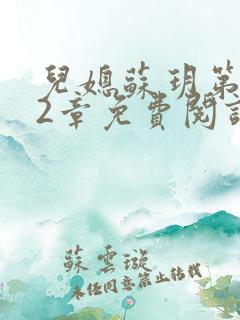 兒媳蘇玥第
2章免費閱
蘇雲璇
未经同意禁止转载